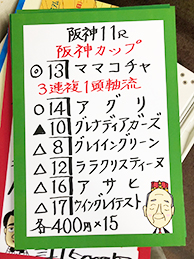 阪神11R
阪神カップ
◎13ママコチャ
3連複1頭軸流
○14アグリ
▲10グレナディアガーズ
△8グレイイングリーン
△12ララクリスティーヌ
△16アサヒ
△17ウイングレイテスト
各400円×15